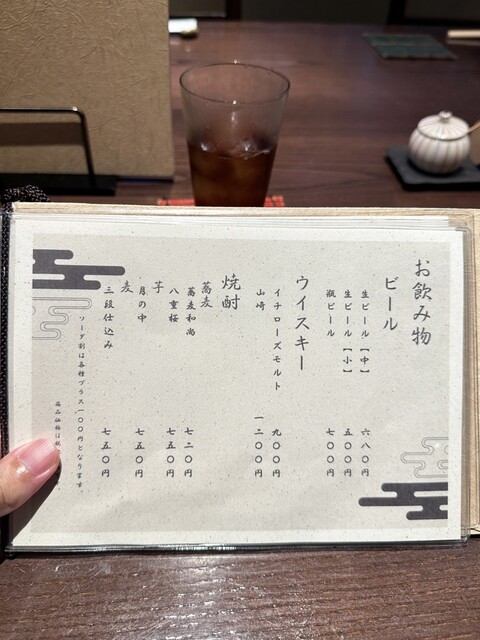 お飲み物
ビール
生ビール【中】 六八〇円
生ビール【小】 五〇〇円
瓶ビール 七〇〇円
ウイスキー
イチローズモルト 九〇〇円
山崎 一二〇〇円
焼酎
蕎麦
蕎麦和尚 七二〇円
八重桜 七五〇円
芋
月の中 七五〇円
麦
三段仕込み 七五〇円
ソーダ割は各種プラス一〇〇円となります。
商品価格は税